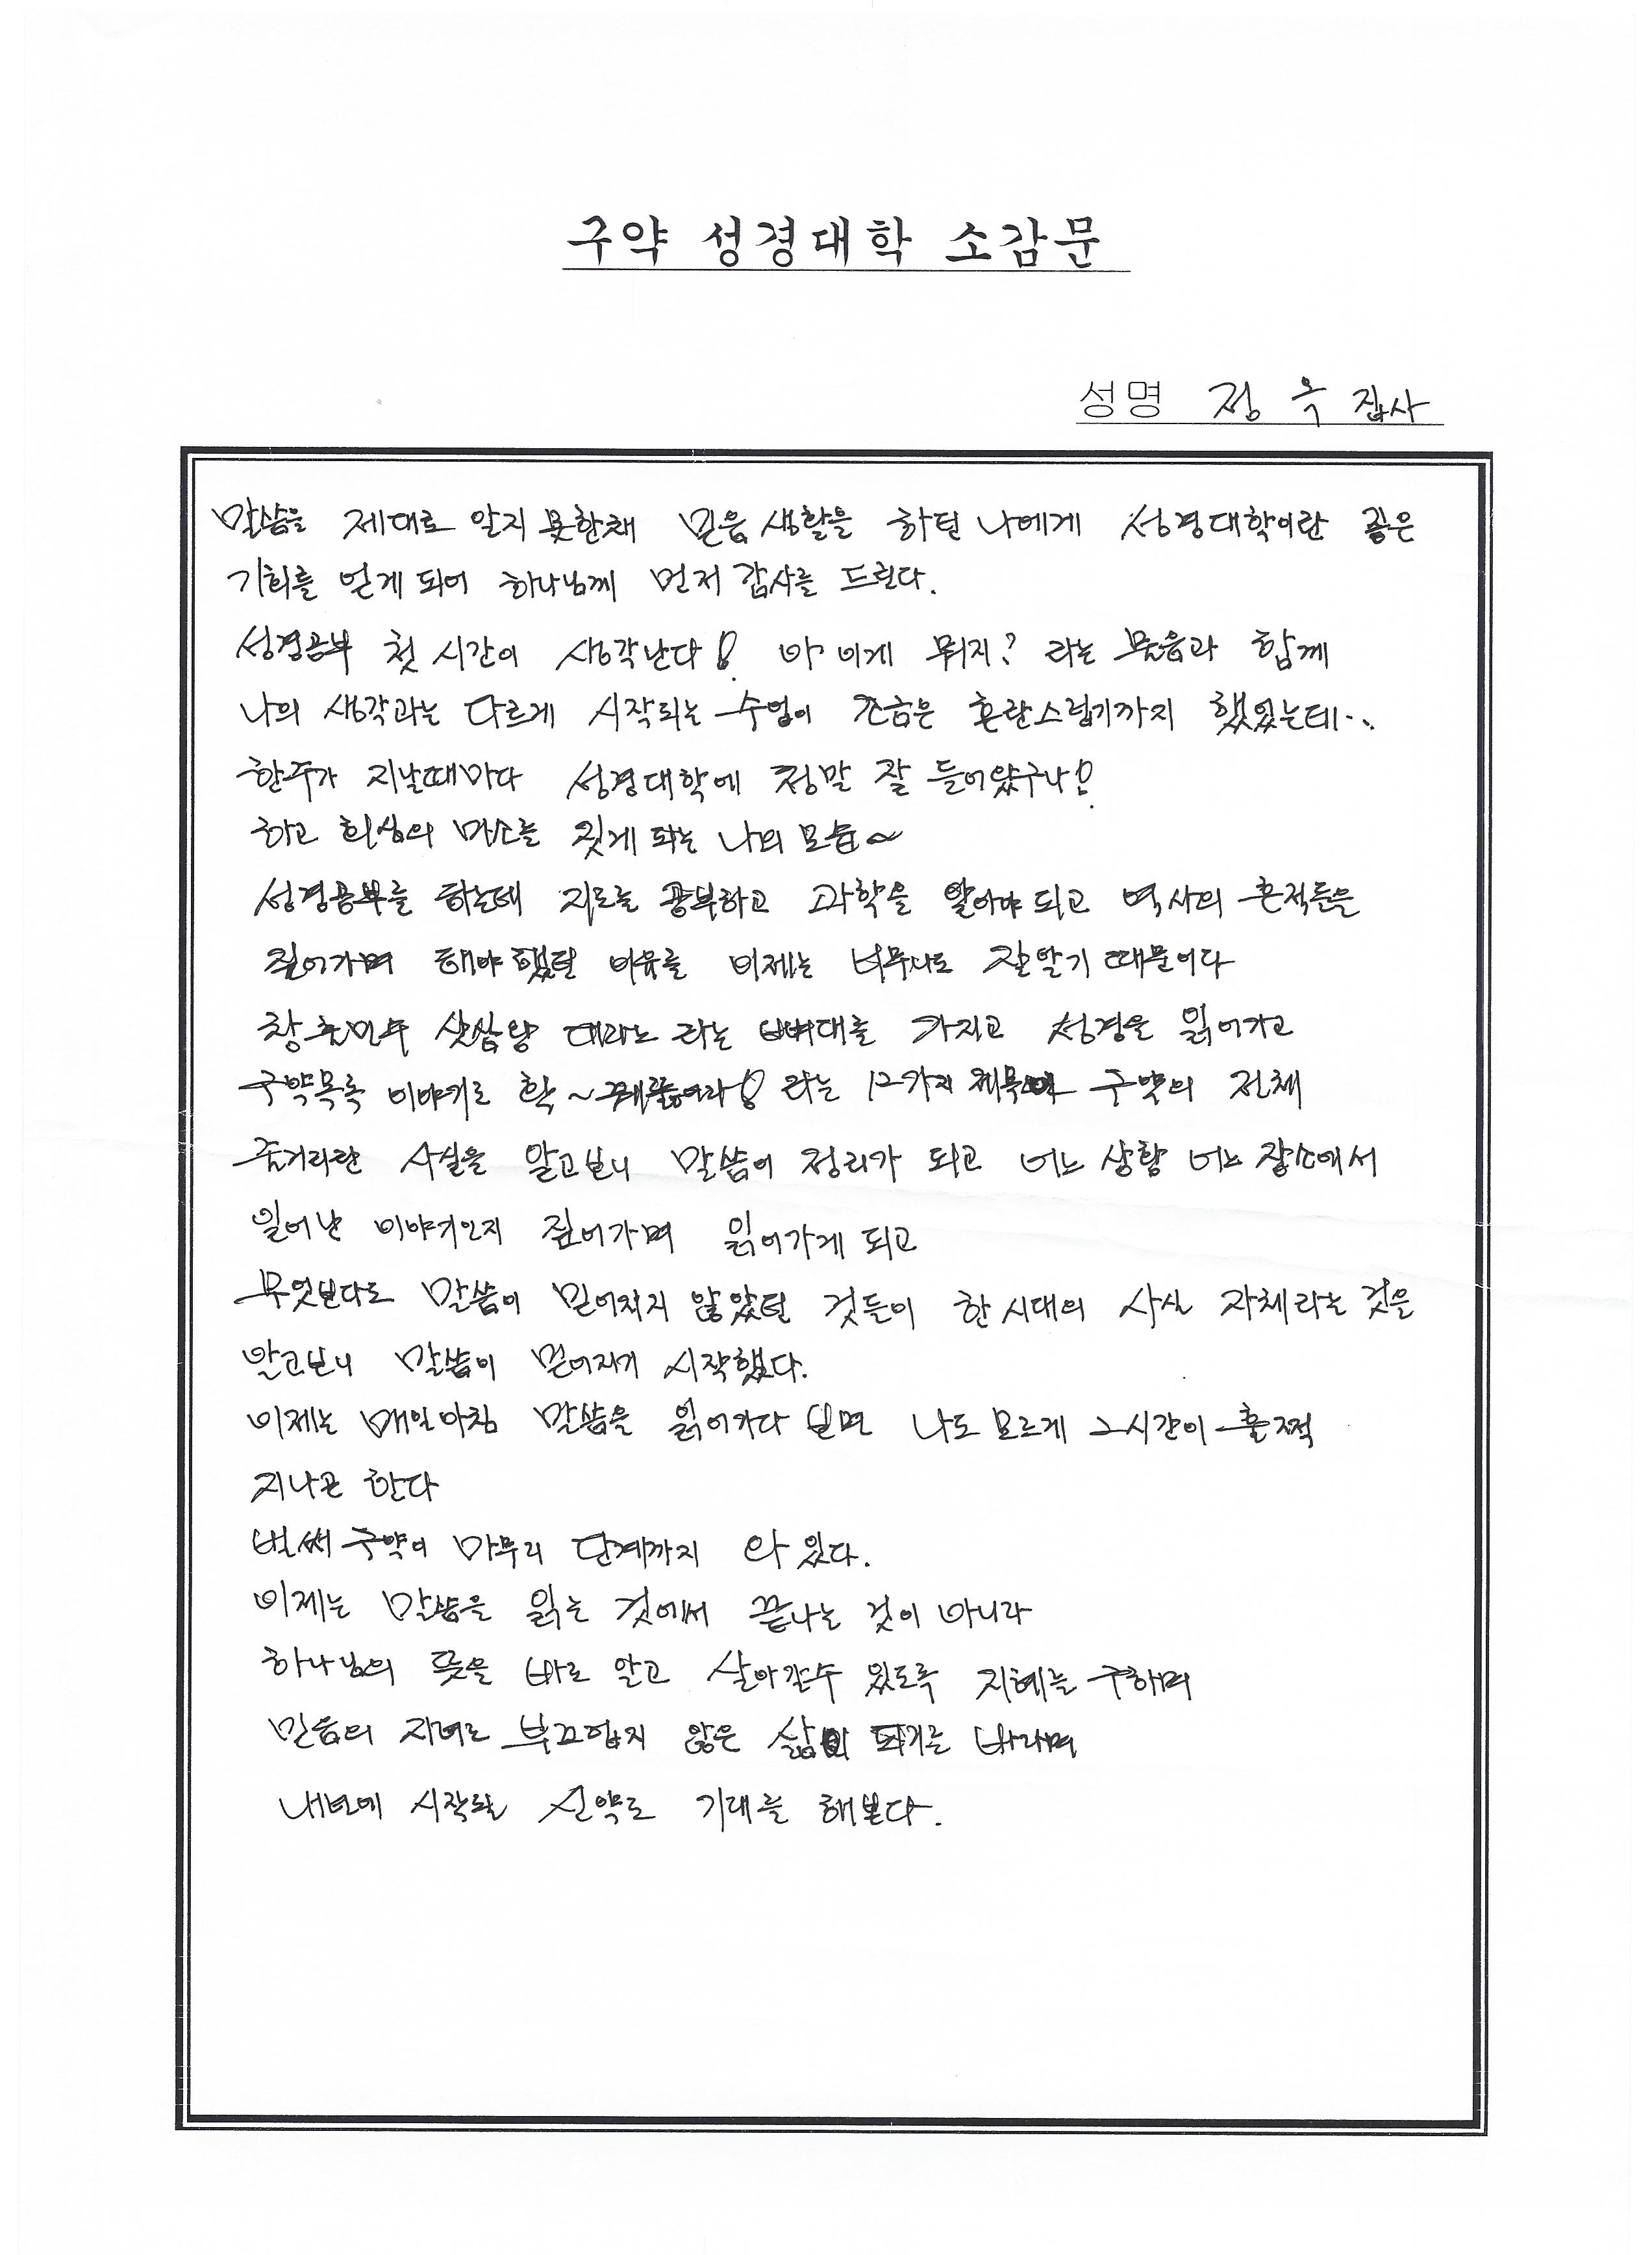 구약 성경대학 소감문
성명 정 옥 집사
말씀을 제대로 알지 못한채 믿음 생활을 하던 나에게 성경대학이란 좋은
기회를 얻게 되어 하나님께 먼저 감사를 드린다.
성경공부 첫 시간이 생각난다! 아 이게 뭐지? 라는 물음과 함께
나의 생각과는 다르게 시작되는 수업이 조금은 혼란스럽기까지 했었는데..
한주가 지날때마다 성경대학에 정말 잘 들어왔구나!
하고 회심의 미소를 짓게 되는 나의 모습~
성경공부를 하는데 지도를 공부하고 과학을 알아야 되고 역사의 흔적들을
짚어가며 해야 했던 이유를 이제는 너무나도 잘알기 때문이다
창출민수 삿삼왕 대라느 라는 뼈대를 가지고 성경을 읽어가고
구약목록 이야기로 확~ 꿰뚫어라! 라는 12가지 제목이 구약의 전체
줄거리란 사실을 알고보니 말씀이 정리가 되고 어느 상황 어느 장소에서
일어난 이야기인지 짚어가며 읽어가게 되고
무엇보다도 말씀이 믿어지지 않았던 것들이 한 시대의 사실 자체라는 것을
알고보니 말씀이 믿어지기 시작했다.
이제는 매일아침 말씀을 읽어가다 보면 나도 모르게 그시간이 훌쩍
지나곤 한다
벌써 구약이 마무리 단계까지 와 있다.
이제는 말씀을 읽는 것에서 끝나는 것이 아니라
하나님의 뜻을 바로 알고 살아갈수 있도록 지혜를 구하며
믿음의 자녀로 부끄럽지 않은 삶이 되기를 바라며
내년에 시작될 신약도 기대를 해본다.